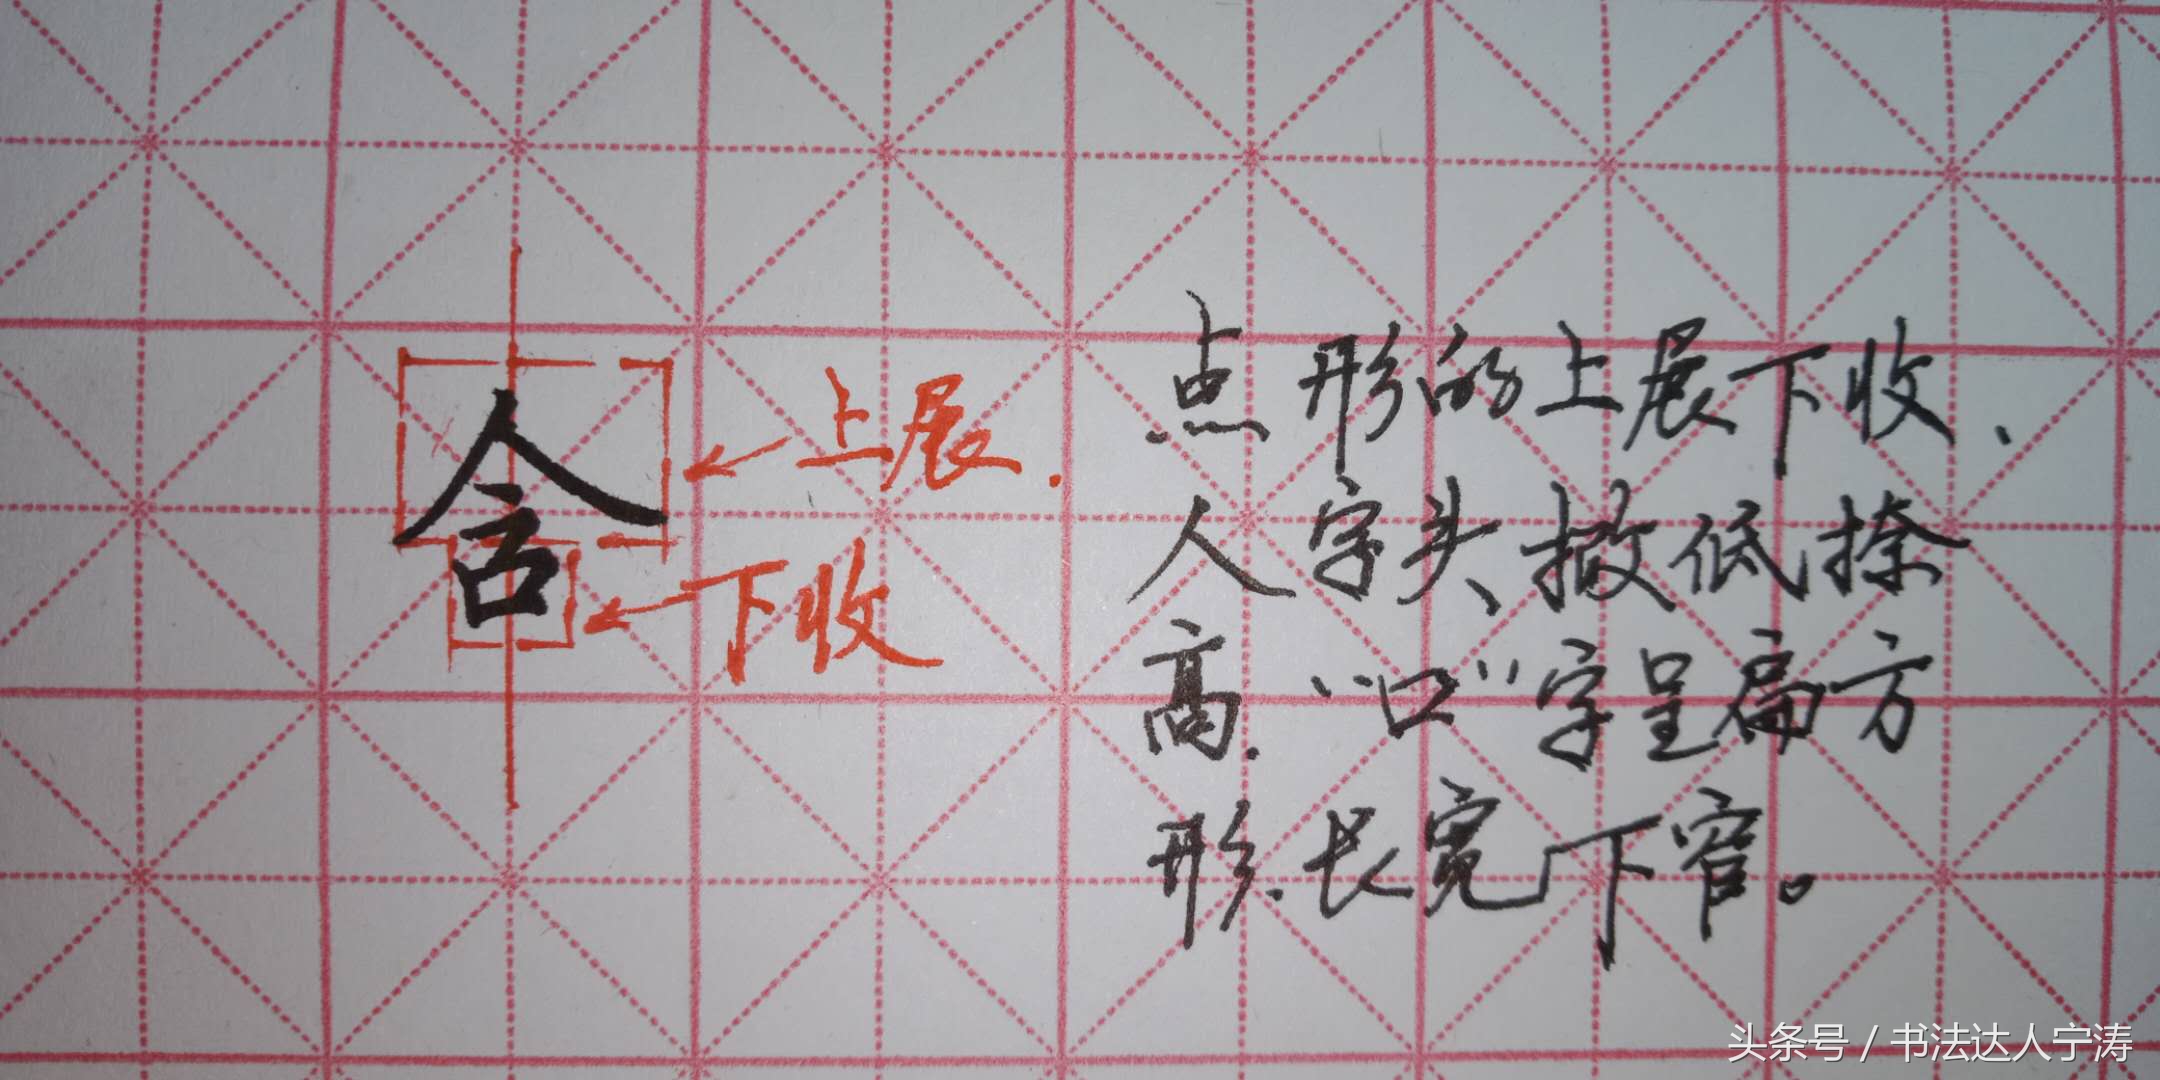 含
上展.
下收
点形的上展下收.
人字头撇低捺
高.“口”字呈扁方
形.长宽下窄。
头条号 / 书法达人宁涛